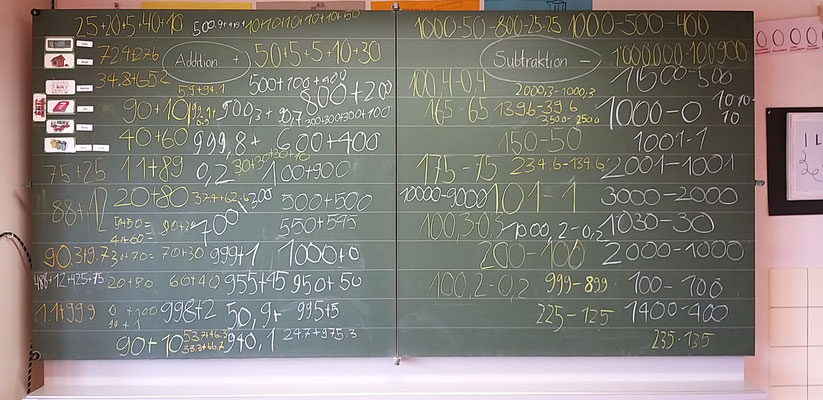 25+20+5+40+10
10+10+10+10+10+50
72.4+27.6
Addition +
50+5+5+10+30
34.8+65.2
59+9+1
500+100+400
800+200
90+10
40+60
999,8+
0,2
600+400
75+25
11+89
30+30+30+10
100+900
88+12
20+80
37.4+62.6
700+300
500+500
50+50=
40+60=
550+545
90,3+9.7
30+70=
70+30
999+1
1000+0
488+12+425+75
20+80
60+40
955+45
950+50
1.1+99.9
0+100
99+1
998+2
50,9+
940,1
995+5
90+10
53.7+46.3
33.3+66.7
24.7+975.3
1000-50-800-25-25
1000-500-400
Subtraktion -
1'000'000-100'900
100,4-0,4
2000,3-1000,3
1'500-500
165-65
139.6-39.6
3500-2500
1000-0
1010-10
150-50
1001-1
175-75
234.6-134.6
2001-1001
10000-9000
101-1
3000-2000
100,3-0,3
1000,2-0,2
1030-30
200-100
2000-1000
100,2-0,2
999-899
100-100
225-125
1400-400
235-135